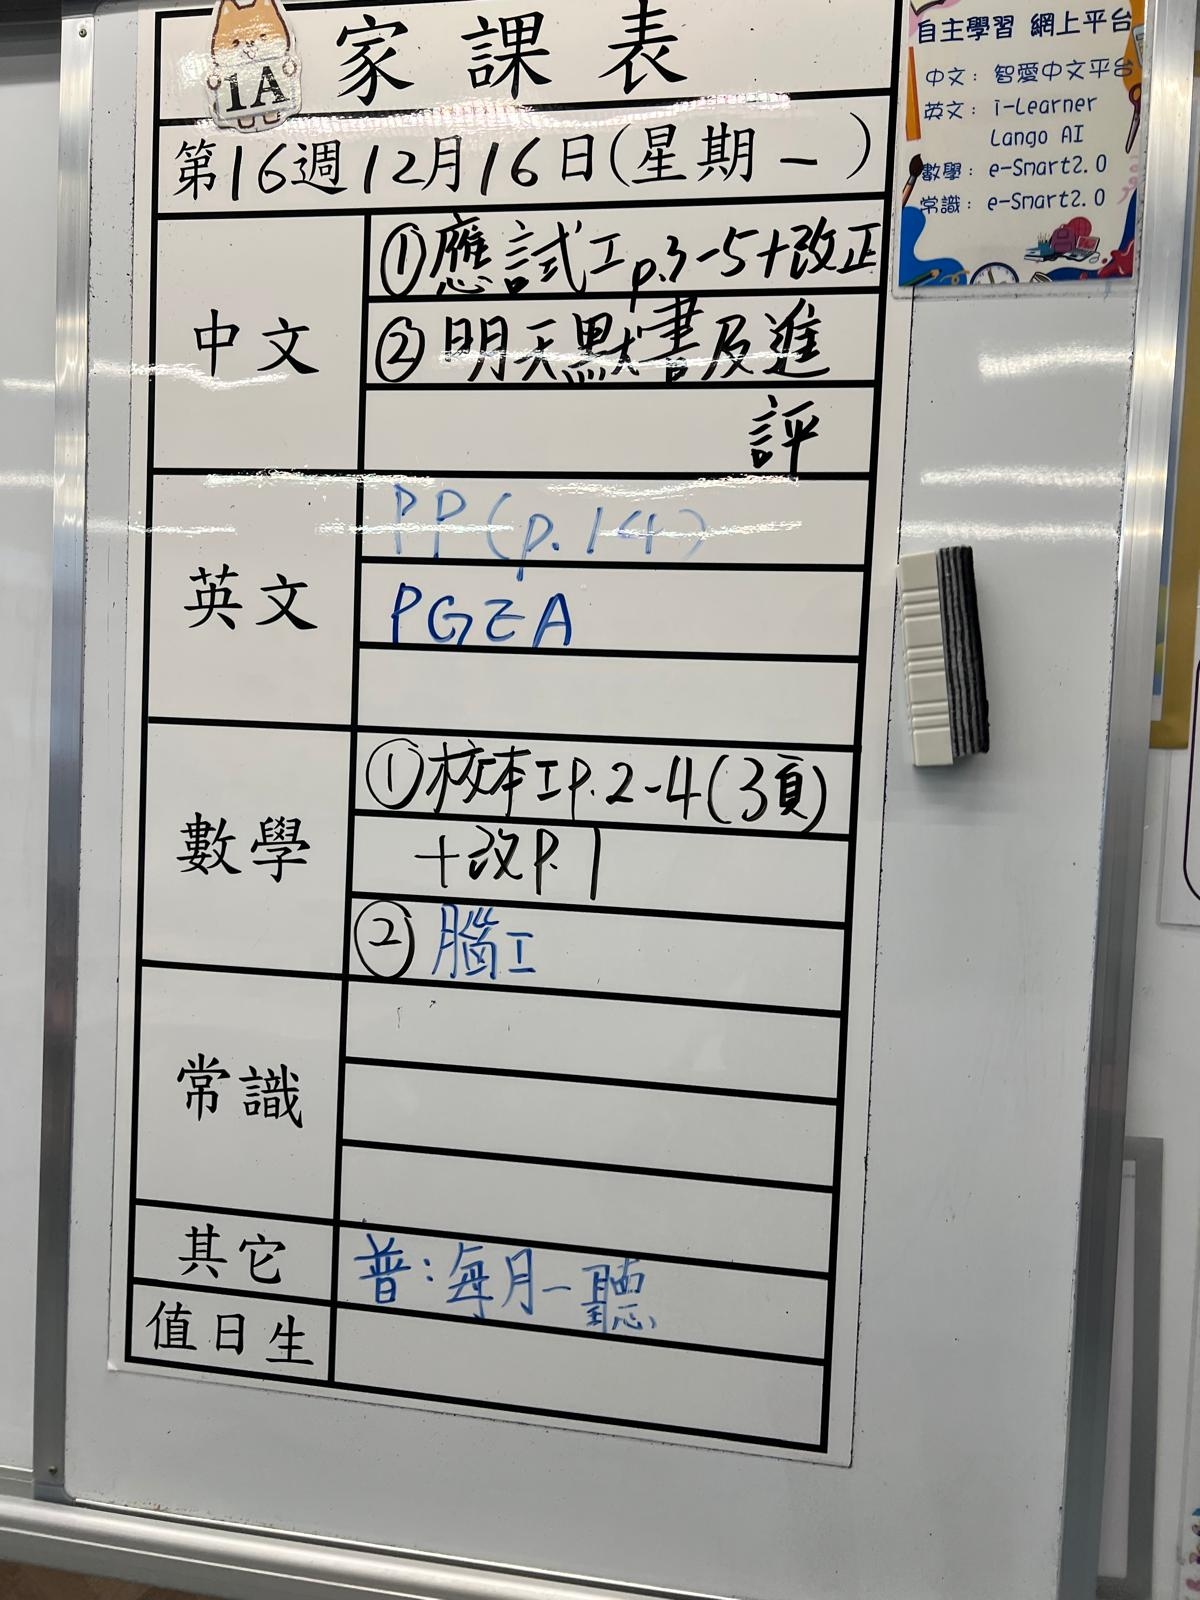 1A
家課表
第16週12月16日(星期一)
中文
①應試工p.3-5+改正
②明天默書及進
評
英文
PP(p.14)
PGEA
數學
①校本工P.2-4(3頁)
+改P.1
②腦工
常識
其它
普:每月一聽
值日生
自主學習 網上平台
中文: 智愛中文平台
英文: i-Learner
Lango AI
數學: e-Smart2.0
常識: e-Smart2.0